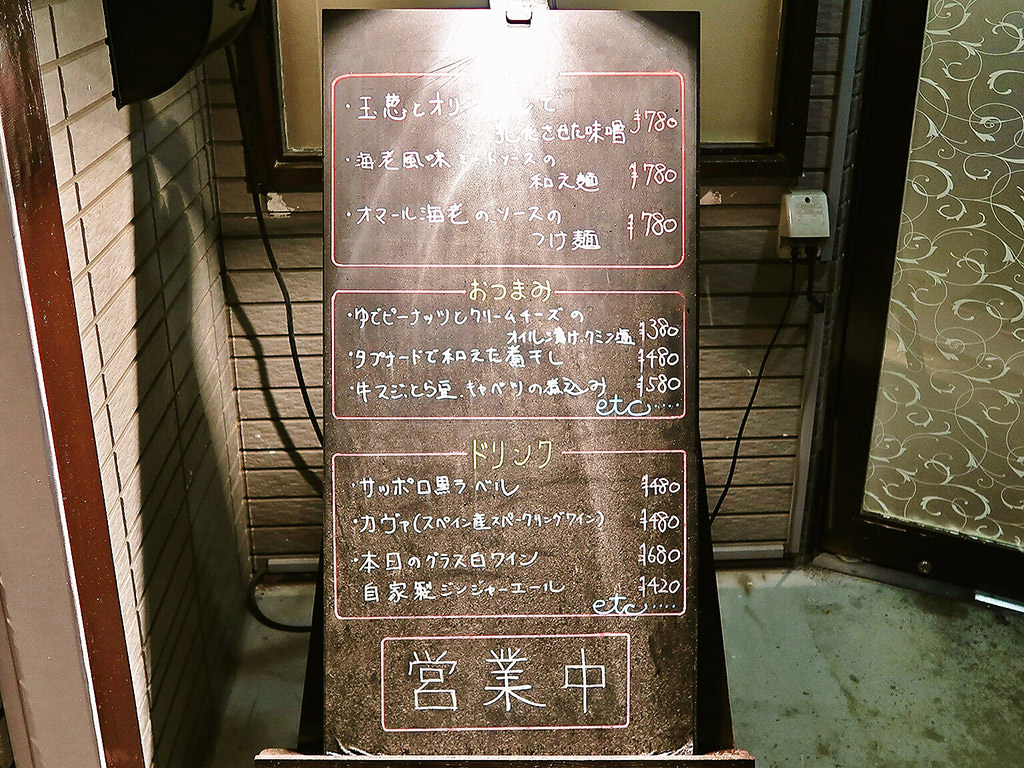 ・玉葱とオリ
乳化させた味噌 ¥780
・海老風味 ソースの
和え麺 ¥780
・オマール海老のソースの
つけ麺 ¥780
おつまみ
・ゆでピーナッツとクリームチーズの
オイル漬け・クミン塩 ¥380
・タプナードで和えた煮干し ¥480
・牛スジ、とら豆、キャベツの煮込み ¥580
etc.....
ドリンク
・サッポロ黒ラベル ¥480
・カヴァ(スペイン産スパークリングワイン) ¥480
・本日のグラス白ワイン ¥680
自家製ジンジャーエール ¥420
etc.....
営業中